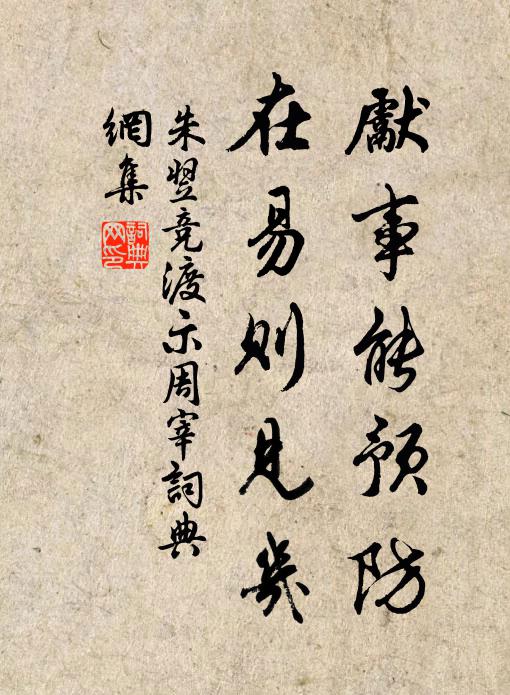 獻事能預防
在易則見幾
朱翌竞渡示周宰詞典
網集
詞典網印